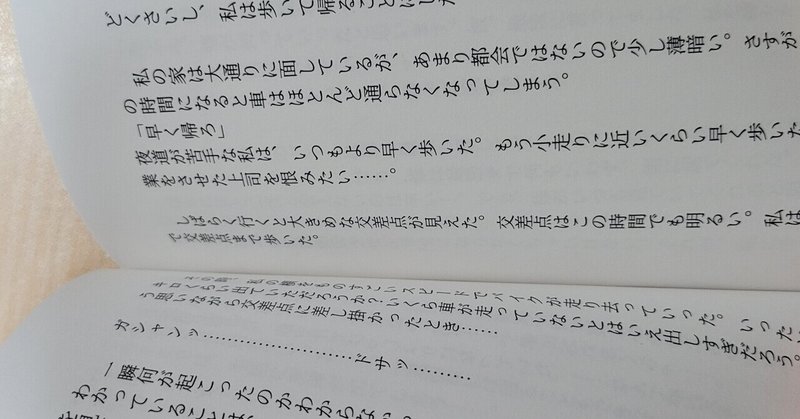 どくさいし、私は歩いて帰ることにした
私の家は大通りに面しているが、あまり都会ではないので少し薄暗い。さすが
の時間になると車はほとんど通らなくなってしまう。
「早く帰ろ」
夜道が苦手な私は、いつもより早く歩いた。もう小走りに近いくらい早く歩いた
業をさせた上司を恨みたい……。
しばらく行くと大きめな交差点が見えた。交差点はこの時間でも明るい。私は
で交差点まで歩いた。
その時、私の横をものすごいスピードでバイクが走り去っていった。いったい
キロくらい出ていただろうか？いくら車が走っていないとはいえ出しすぎだろう。
う思いながら交差点に差し掛かったとき……
ガシャンッ……………………ドサッ………
一瞬何が起こったのかわからない
わかっていることは、